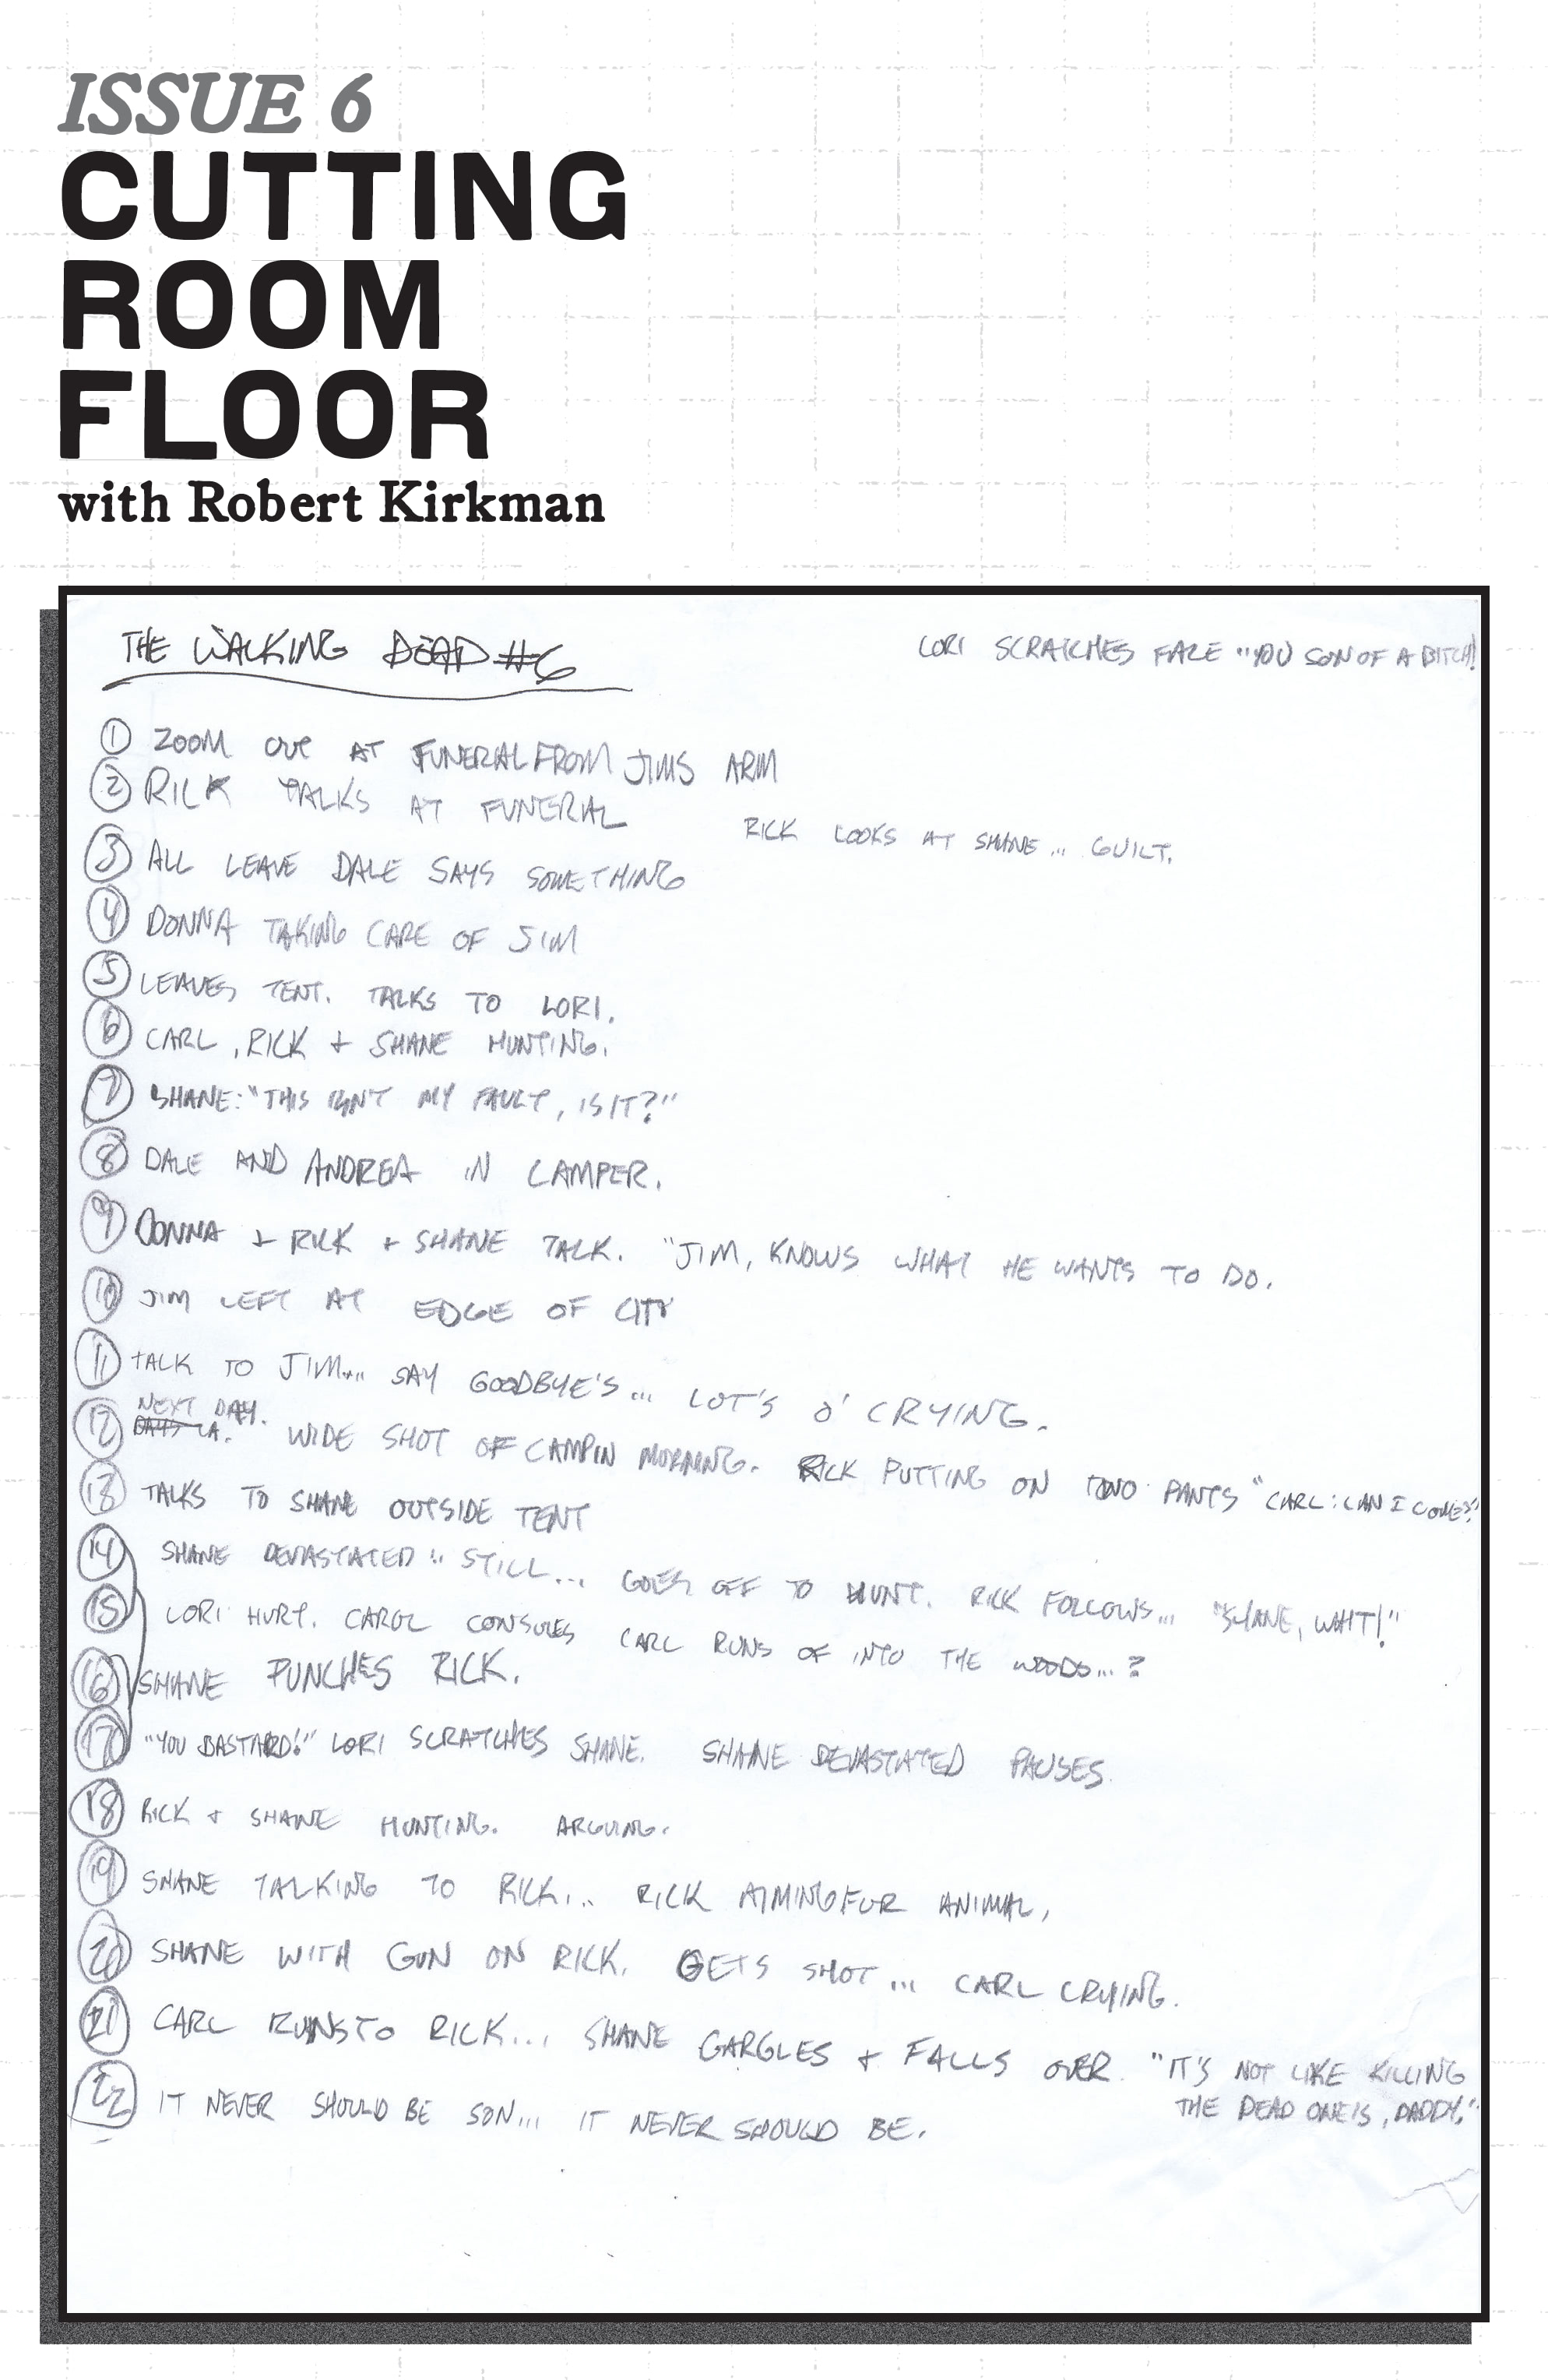 ISSUE 6
CUTTING
ROOM
FLOOR
with Robert Kirkman
THE WALKING DEAD #6
LORI SCRATCHES FACE "YOU SON OF A BITCH!
1 ZOOM OUT AT FUNERAL FROM JIMS ARM
2 RICK TALKS AT FUNERAL
RICK LOOKS AT SHANE... GUILT.
3 ALL LEAVE DALE SAYS SOMETHING
4 DONNA TAKING CARE OF JIM
5 LEAVES TENT. TALKS TO LORI.
6 CARL, RICK + SHANE HUNTING.
7 SHANE: "THIS ISN'T MY FAULT, IS IT?"
8 DALE AND ANDREA IN CAMPER.
9 DONNA + RICK + SHANE TALK. "JIM, KNOWS WHAT HE WANTS TO DO.
10 JIM LEFT AT EDGE OF CITY
11 TALK TO JIM... SAY GOODBYE'S... LOT'S O' CRYING.
NEXT DAY.
12 WIDE SHOT OF CAMP IN MORNING. RICK PUTTING ON PANTS "CARL: CAN I COME?"
13 TALKS TO SHANE OUTSIDE TENT
14 SHANE DEVASTATED STILL... GOES OFF TO HUNT. RICK FOLLOWS... "SHANE, WAIT!"
15 LORI HURT. CAROL CONSOLES CARL RUNS OF INTO THE WOODS...?
16 SHANE PUNCHES RICK.
17 "YOU BASTARD!" LORI SCRATCHES SHANE. SHANE DEVASTATED PAUSES.
18 RICK + SHANE HUNTING. ARGUING.
19 SHANE TALKING TO RICK... RICK AIMING FUR ANIMAL,
20 SHANE WITH GUN ON RICK. GETS SHOT... CARL CRYING.
21 CARL RUNS TO RICK... SHANE GARGLES + FALLS OVER. "IT'S NOT LIKE KILLING
THE DEAD ONE IS, DADDY."
22 IT NEVER SHOULD BE SON... IT NEVER SHOULD BE.